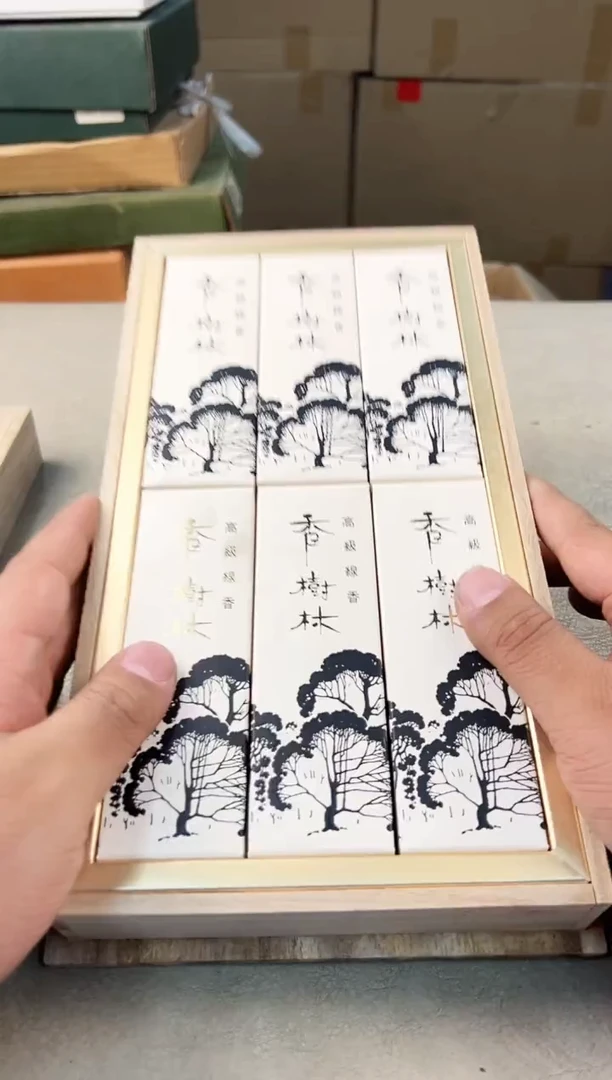 香樹林
高級線香
香樹林
高級線香
香樹林
高級線香
香樹林
高級線香
香樹林
高級線香
香樹林
高級